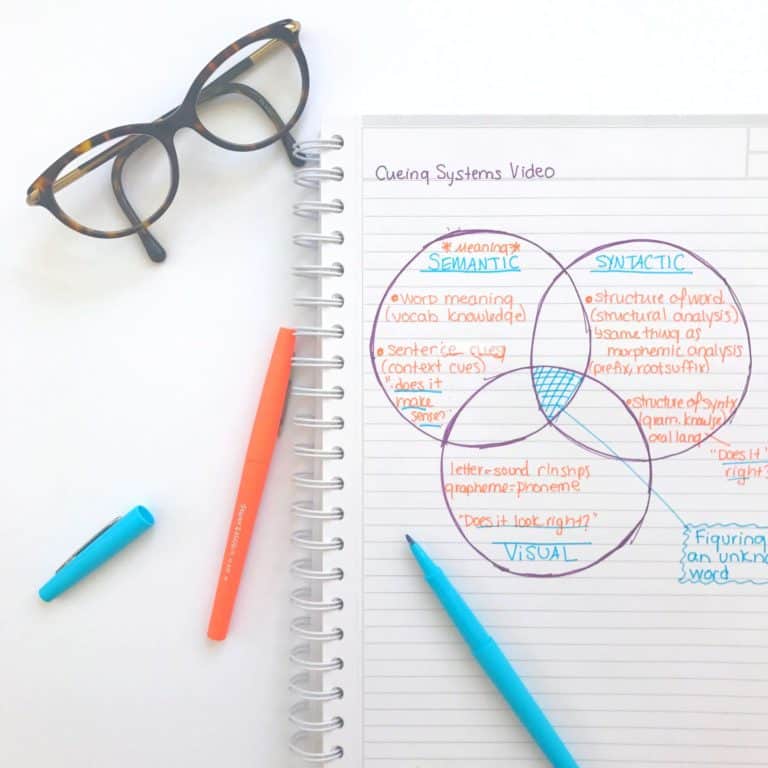 Cueing Systems Video
*Meaning*
SEMANTIC
•word meaning
(vocab knowledge)
•sentence cues
(context cues)
"does it
make
sense?
SYNTACTIC
•structure of word
(structural analysis)
↳same thing as
morphemic analysis
(prefix, root suffix)
•structure of
(gram.
oral lang
"Does it
right?
letter=sound rlnshps
grapheme=phoneme
"Does it look right?"
VISUAL
Figuring
an unkn
word